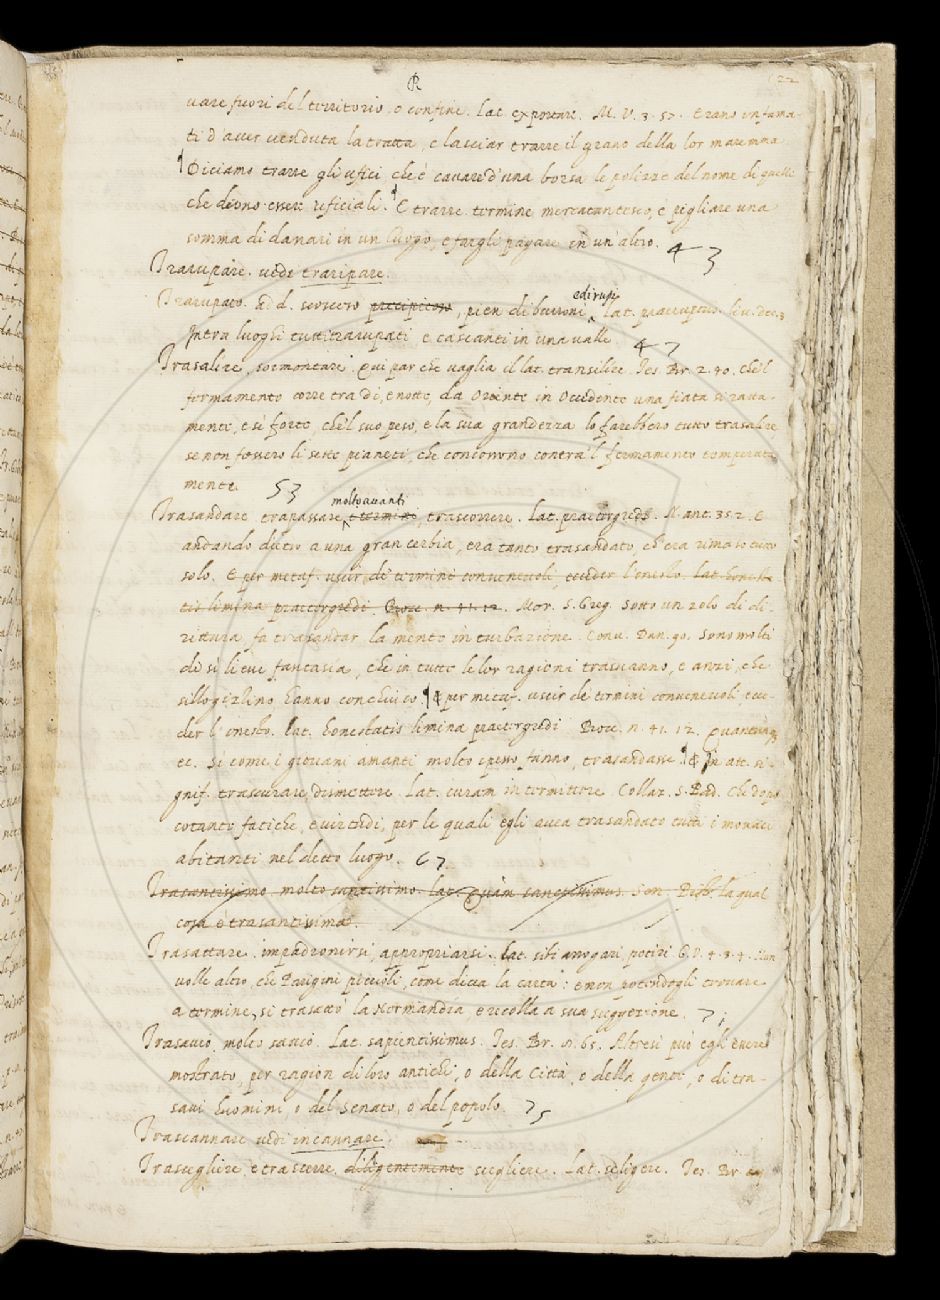 R
122
vare fuori del territorio, o confine. lat. exportare. M. V. 3. 57. Erano infama-
ti d'aver venduta la tratta, e lasciar trarre il grano della lor maremma
Diciamo trarre gli ufici che è cavare d'una borsa le polizze del nome di quelli
che deono essere uficiali. E trarre termine mercatantesco, è pigliare una
somma di danari in un luogo, e fargli pagare in un altro. 43
Trarupare. vedi traripare.
edirupi
Trarupato. ad d. scosceso precipitoso, pien di burroni, lat. praeruptus. liv. dec. 3
Intra luoghi tutti trarupati e cascanti in una valle 47
Trasalire, sormontare. Qui par che vaglia il lat. transilire. Tes. Br. 2. 40. Che'l
fermamento corre tra dì, e notte, da Oriente in Occidente una fiata si rava-
mente, e sì forte, che'l suo peso, e la sua grandezza lo farebbero tutto trasalire,
se non fossero li sette pianeti, che concorrono contra'l fermamento temperata
mente 53
molto avanti
Trasandare trapassare e termini, trascorrere. Lat. praetergredi. N. ant. 35. 2. E
andando dietro a una gran cerbia, era tanto trasandato, ch'era rimaso tutto
solo. E per metaf. uscir de termini convenevoli, ecceder l'onesto. Lat. honesta
tis limina praetergredi. Bocc. n. 41. 12. Mor. S. Greg. Sotto un zelo di di-
rittura, fa trasandar la mente in turbazione. Conv. Dan. 90. Sono molti
di sì lieve fantasia, che in tutte le lor ragioni trasvanno, e anzi, che
sillogizzino hanno conchiuso. E per metaf. uscir de termini convenevoli ecce-
der l'onesto. lat. honestatis limina praetergredi Bocc. n. 41. 12. Quantunq
ec. Si come i giovani amanti molto spesso fanno, trasandasse. E in att. si-
gnif. trascurare, dismettere. Lat. curam intermittere. Collaz. S. Pad. Che dopo
cotante fatiche, e virtudi, per le quali egli avea trasandato tutti i monaci
abitanti nel detto luogo. 67
Trasantissimo molto santissimo. lat. quàm sanctissimus. Sen. Pist. la qual
cosa è trasantissima.
Trasattare. impadronirsi, appropriarsi. lat. sibi arrogari, potiri G. V. 4. 3. 4. Non
volle altro, che Parigini piccioli, come dicea la carta: e non potendogli trovare
a termine, si trasattò la Normandia, e recolla a sua suggezione. 71
Trasavio, molto savio. Lat. sapientissimus. Tes. Br. n. 65. Altresì può egli essere
mostrato, per ragion di loro antichi, o della Città, o della gente, o di tra-
savi huomini, o del Senato, o del popolo. 75
Trascannare vedi incannare.
Trascegliere e trascerre, diligentemente scegliere. Lat. seligere. Tes. Br